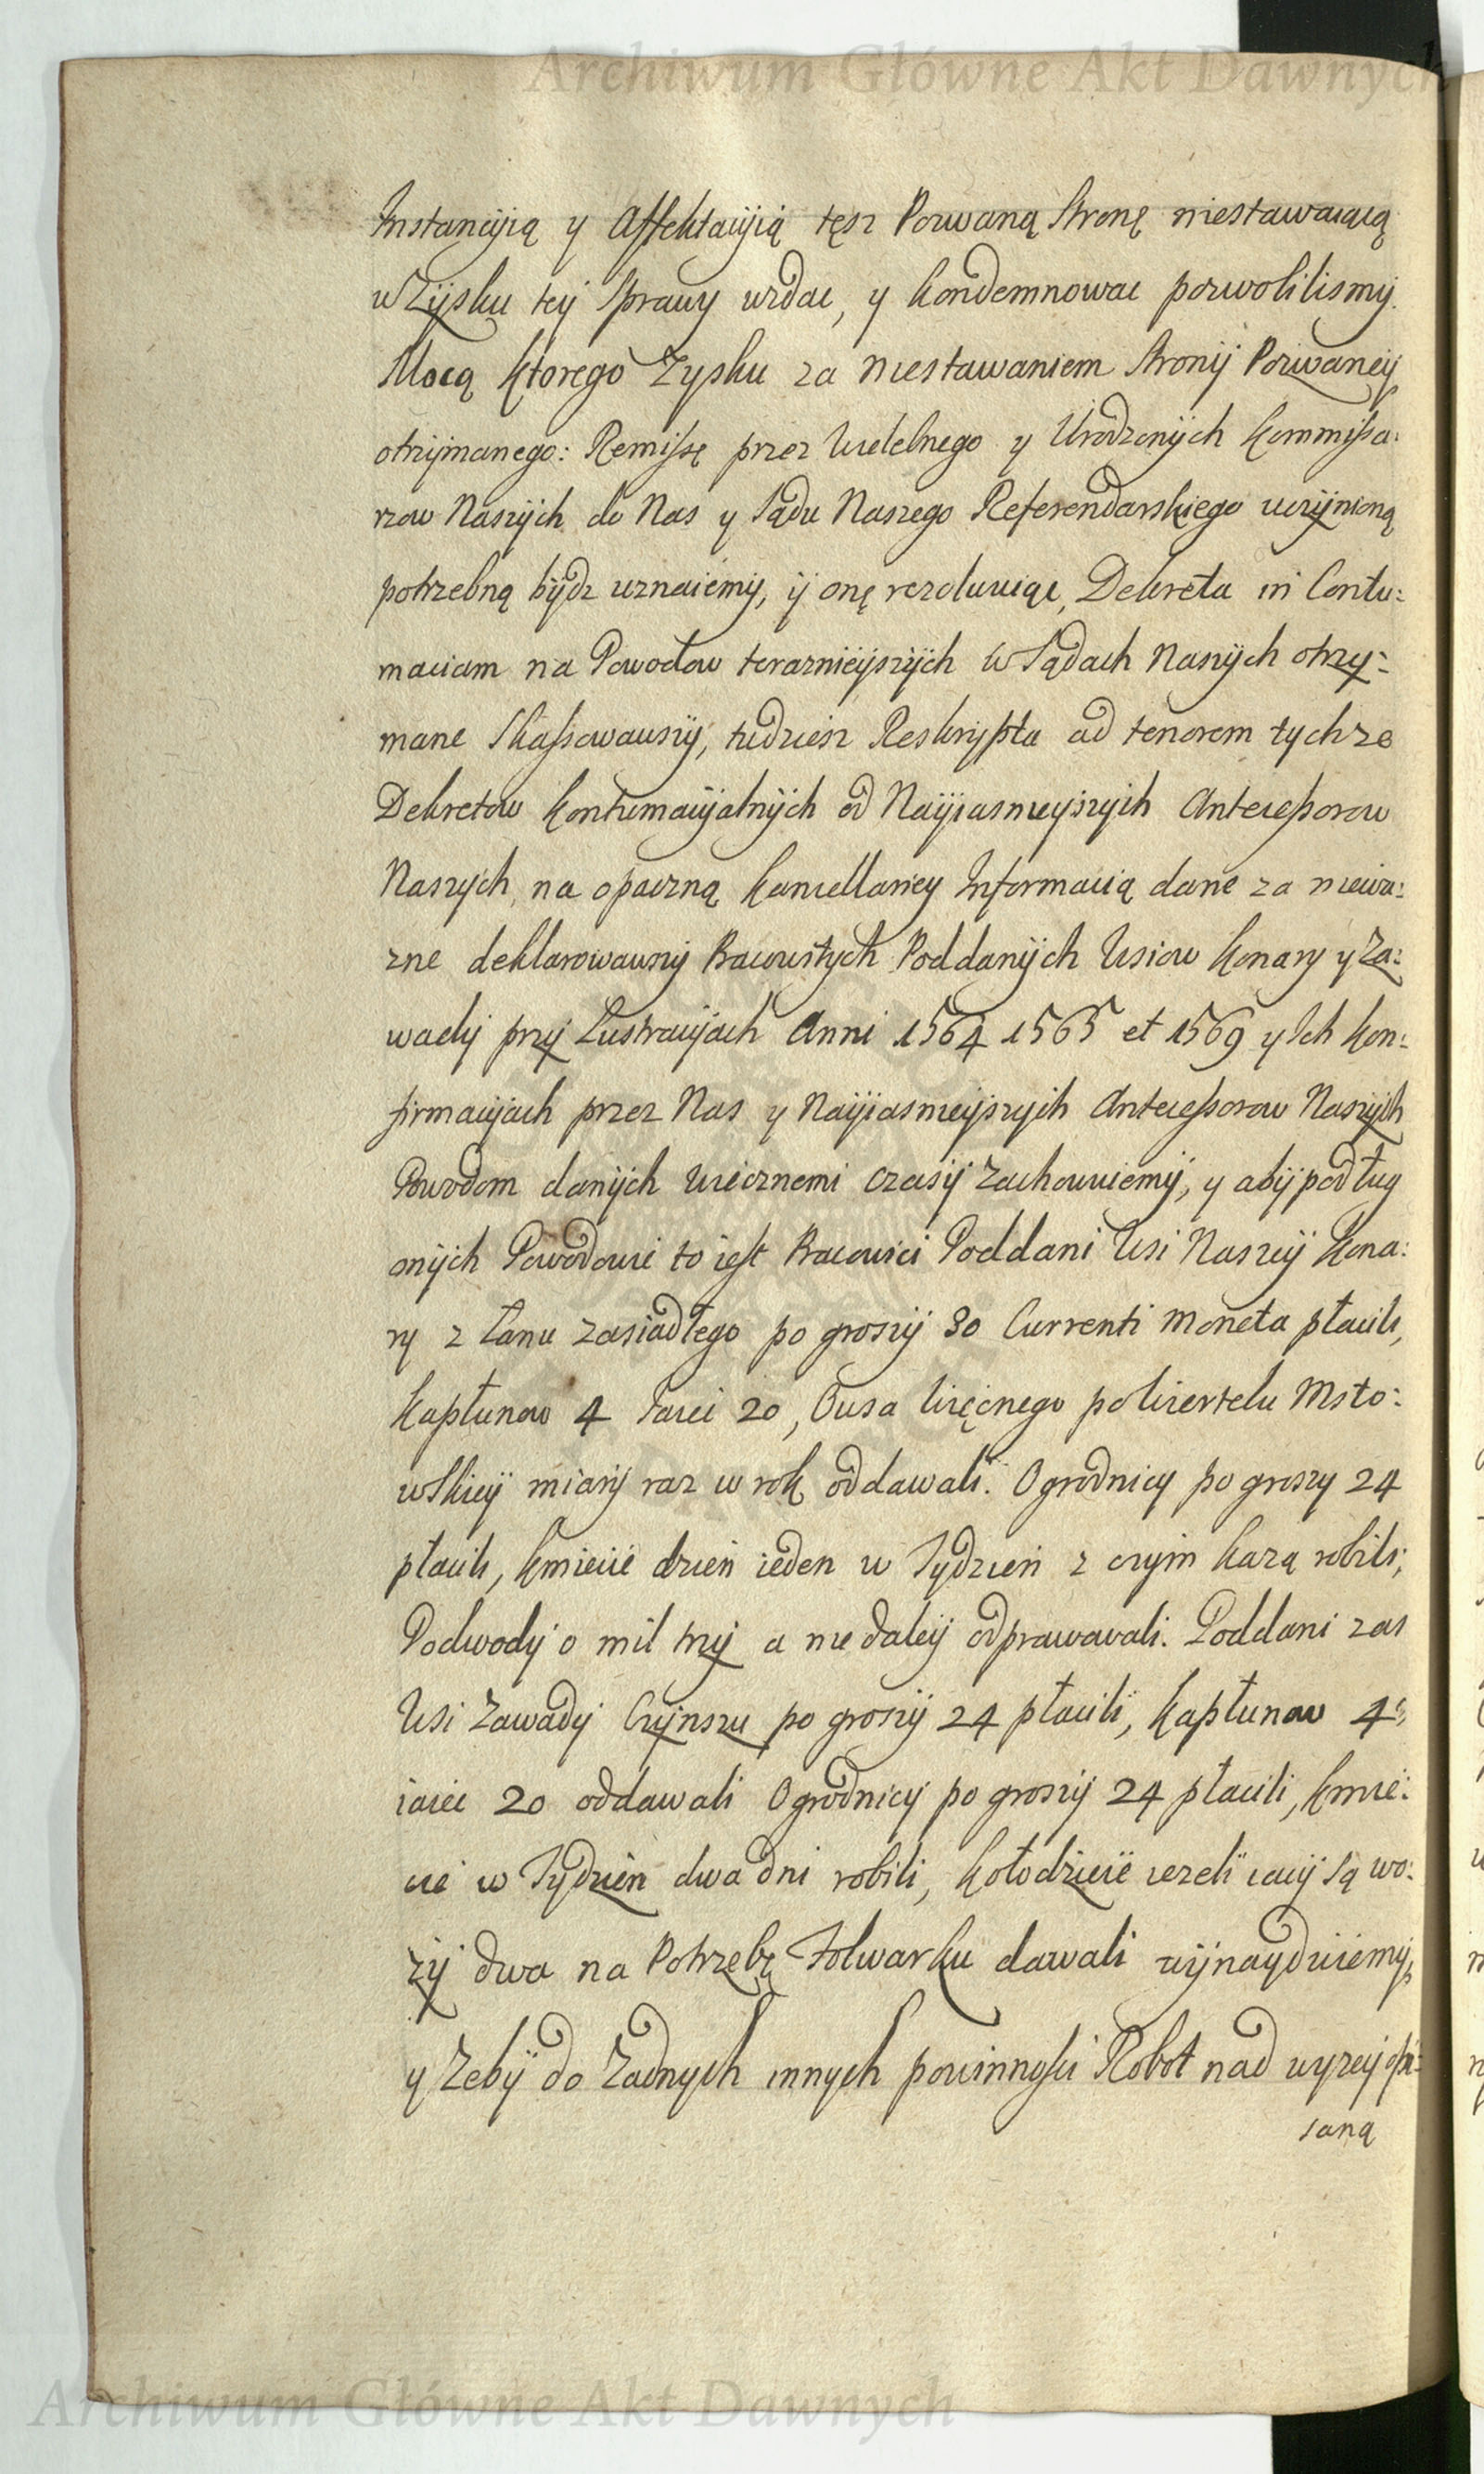 Archiwum Główne Akt Dawnych
Instancyią y Affektacyią tęsz Pozwaną Stronę niestawaiącą
w Zÿsku teÿ Sprawy wzdac, y kondemnowac pozwolilismÿ.
Mocą ktorego Zysku za niestawaniem Stronÿ Pozwaneÿ
otrzÿmanego: Remissę przez Wielebnego y Urodzonÿch kommissa:
rzow Naszÿch do Nas y Sądu Naszego Referendarskiego uczÿnioną
potrzebną bÿdz uznaiemÿ, ÿ onę rezolwuiąc, Dekreta in Contu:
maciam na Powodow terazniéÿszÿch w Sądach Naszÿch otrzy:
mane Skassowawszÿ, tudziesz Reskrypta ad tenorem tychze
Dekretow kontumacÿalnÿch od Naÿiasnieÿszych Antecessorow
Naszych, na opaczną kancellariey Informacią dane za niewa:
zne deklarowawszÿ Pracowitych Poddanÿch Wsiow Konary y Za:
wadÿ przÿ Lustracÿach Anni 1564 1565 et 1569 y Ich kon:
firmacÿach przez Nas y Naÿiasnieÿszych Antecessorow Naszÿch
Powodom danÿch wiecznemi czasÿ zachowuiemÿ, y abÿ podług
onÿch Powodowie to iest Pracowici Poddani Wsi Naszeÿ Kona:
ry z Łanu zasiadłego po groszÿ 30 Currenti Moneta płacili,
kapłunow 4 Iaiec 20, Owsa więcnego po wiertelu Msto:
wskieÿ miarÿ raz w rok oddawali. Ogrodnicy po groszy 24
płacili, kmiecie dzień ieden w Tydzień z czÿm każą robili;
Podwodÿ o mil trzÿ a nie daleÿ odprawowali. Poddani zas
Wsi Zawadÿ Czÿnszu po groszÿ 24 płacili, kapłunow 4,
iaiec 20 oddawali Ogrodnicÿ po groszÿ 24 płacili, kmie:
cie w Tydzień dwa dni robili, kołodzieie iezeli iacÿ są wo:
zÿ dwa na Potrzebę Folwarku dawali wÿnayduiemÿ,
y zebÿ do zadnych innych powinnosci Robot nad wyzeÿ opi:
saną
Archiwum Główne Akt Dawnych